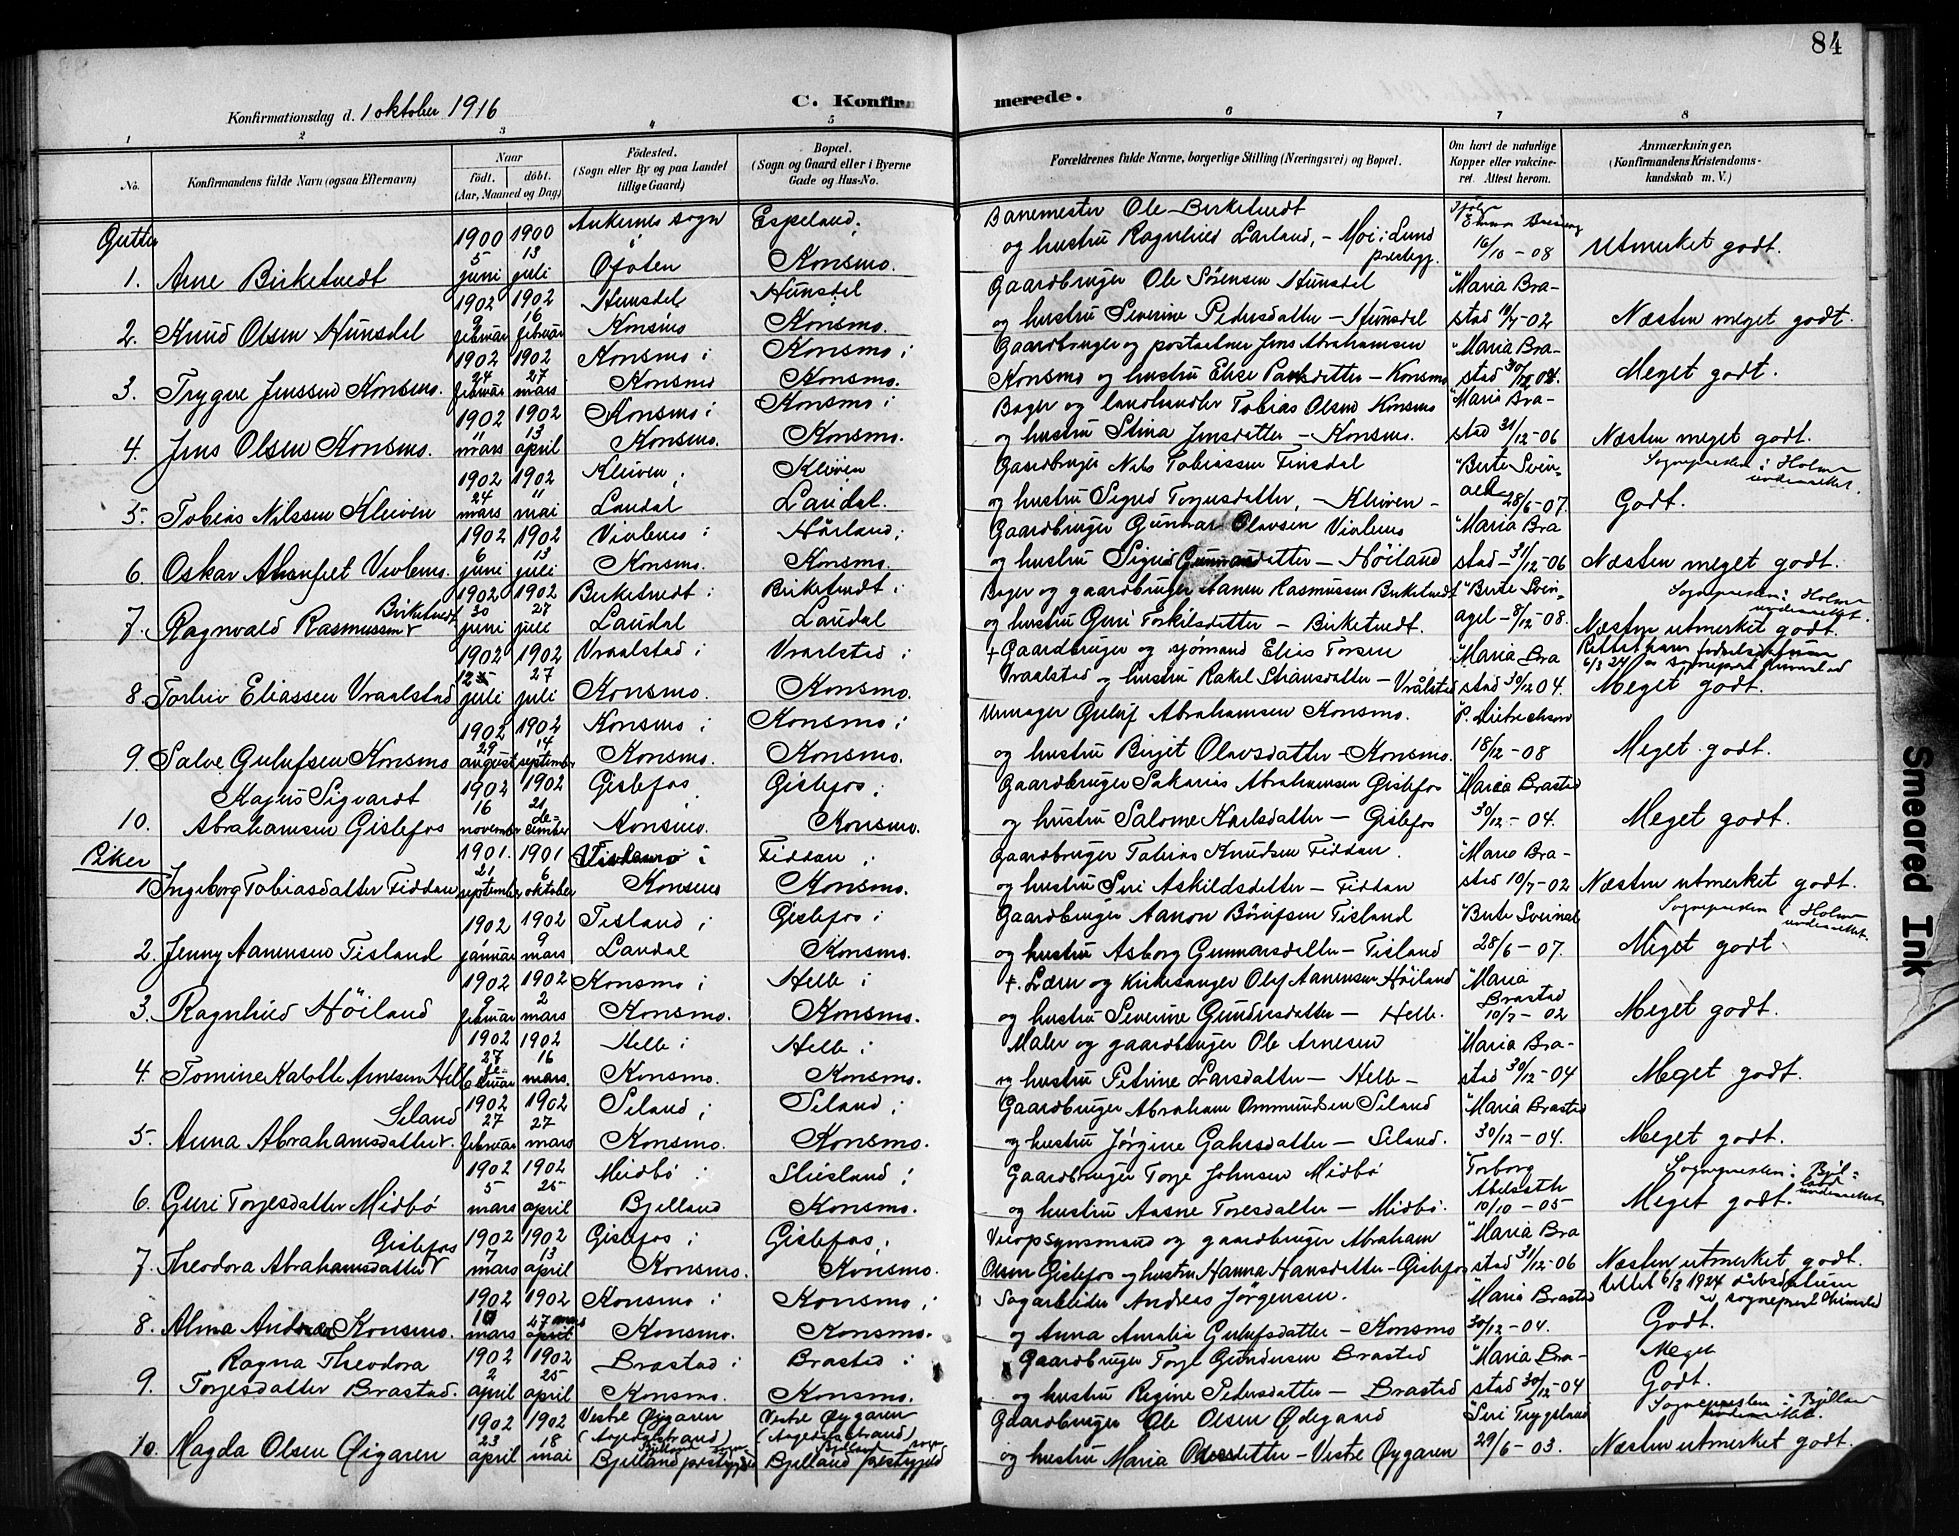 84
C. Konfirmerede.
Konfirmationsdag d. 1 oktober 1916
1 2 3 4 5 6 7 8
No.
Konfirmandens fulde Navn (ogsaa Efternavn)
Naar
født. døbt.
(Aar, Maaned og Dag)
Fødested.
(Sogn eller By og paa Landet
tillige Gaard)
Bopæl.
(Sogn og Gaard eller i Byerne
Gade og Hus-No.
Forældrenes fulde Navne, borgerlige Stilling (Næringsvei) og Bopæl.
Om havt de naturlige
Kopper eller vakcine-
ret. Attest herom.
Anmærkninger.
(Konfirmandens Kristendoms-
kundskab m. V.)
Gutter
1900 1900 Ankenes sogn Espeland; Banemester Ole Birketvedt
1. Arne Birketvedt 5 juni 13 juli Ofoten Konsmo. og hustru Ragnhild Larland, - Moi i Lund prestegj. 16/10 - 08 Utmerket godt.
1902 1902 Hunsdel Hunsdel Gaardbruger Ole Sørensen Hunsdel "Maria Bra-
2. Knud Olsen Hunsdel 9 februar 16 februar Konsmo Konsmo. og hustru Severine Pedersdatter - Hunsdel stad 10/7 - 02 Næsten meget godt.
1902 1902 Konsmo i Konsmo i Gaardbruger og postaabner Jens Abrahamsen "Maria Bra-
3. Trygve Jenssen Konsmo. 24 februar 27 mars Konsmo Konsmo. Konsmo og hustru Elise - Konsmo stad 30/12 04. Meget godt.
1902 1902 Konsmo i Konsmo i Bager og landhandler Tobias Olsen Konsmo "Maria Bra-
4. Jens Olsen Konsmo. 11 mars 13 april Konsmo. Konsmo. og hustru Stina Jensdatter - Konsmo. stad 31/12 - 06 Næsten meget godt.
1902 1902 Kleiven; Kleiven Gaardbruger Nils Tobiassen Finsdal "Berte Svin- Sognepresten i Holme underrettet.
5. Tobias Nilssen Kleiven 24 mars 11 mai Laudal Laudal. og hustru Sigrid Torjusdatter, - Kleiven - 28/6 - 07. Godt.
1902 1902 Vivlemo i Høiland; Gaardbruger Gunnar Olavsen Vivlemo "Maria Bra
6. Oskar Vivlemo. 6 juni 13 juli Konsmo. Konsmo. og hustru Sigrid Gunnarsdatter - Høiland stad - 31/12 - 06 Næsten meget godt.
1902 1902 Birketvedt i Birketvedt i Bager og gaardbruger Aanen Rasmussen Birketvedt "Berte Svin- Sognepresten i Holme underrettet.
7. Ragnvald Rasmussen Birketvedt 30 juni 27 juli Laudal Laudal og hustru Guri Torkilsdatter - Birketvedt. agel - 8/12 - 08. Næsten utmerket godt.
1902 1902 Vraalstad i Vraalstad i + Gaardbruger og sjømand Elias Torsen "Maria Bra Rettet ham fødselsdatum 6/3 24 av sogneprest Grimstad
8. Torleiv Eliassen Vraalstad 12 juli 27 juli Konsmo. Konsmo. Vraalstad og hustru Rakel Stiansdatter - Vrålstad stad 30/12 04. Meget godt.
1902 1902 Konsmo i Konsmo i Urmager Guluf Abrahamsen Konsmo. "P. Dietrichson
9. Salve Gulufsen Konsmo 29 august 14 september Konsmo. Konsmo. og hustru Birgit Olavsdatter - Konsmo. 18/12 - 08 Meget godt.
Kajus Sigvardt 1902 1902 Gislefos Gislefos; Gaardbruger Sakarias Abrahamsen Gislefos "Maria Brastad
10. Abrahamsen Gislefos 16 november 21 december Konsmo. Konsmo. og hustru Salome Karlsdatter - Gislefos 30/12 - 04. Meget godt.
Piker
1901. 1901 i Fiddan; Gaardbruger Tobias Knudsen Fiddan. "Maria Bra-
1. Ingeborg Tobiasdatter Fiddan 21 september 6 oktober Konsmo Konsmo. og hustru Siri Askildsdatter - Fiddan stad 10/7 - 02 Næsten utmerket godt.
1902 1902 Tisland; Gislefos i Gaardbruger Aanon Børufsen Tisland "Berte Svinal Sognepresten i Holme underrettet.
2. Jenny Aanensen Tisland januar 9 mars Laudal Konsmo. og hustru Asborg Gunnarsdatter - Tisland 28/6 - 07. Meget godt.
1902 1902 Konsmo i Helle i +. Lærer og kirkesanger Olof Aanensen Høiland "Maria Brastad
3. Ragnhild Høiland 9 februar 2 mars Konsmo. Konsmo. og hustru Severine Gundersdatter - Helle. 10/7 - 02 Meget godt.
1902 1902 Helle i Helle i Maler og gaardbruger Ole Arnesen "Maria Bra-
4. Tomine Kalotte Arnesen Helle 27 februar 16 mars. Konsmo. Konsmo. og hustru Petrine Larsdatter - Helle - stad 30/12 - 04 Meget godt.
1902 1902 Seland; Seland; Gaardbruger Abraham Ommundsen Seland "Maria Brastad
5. Anna Abrahamsdatter Seland. 27 februar 27 mars Konsmo. Konsmo. og hustru Jørgine Gahrsdatter - Seland. 30/12 - 04. Meget godt.
1902 1902 Midbø i Sliesland; Gaardbruger Torje Johnsen Midbø "Torborg Abelseth Sognepresten i Bjelland underrettet.
6. Guri Torjesdatter Midbø 5 mars 25 april Bjelland Konsmo. og hustru Aasne Toresdatter - Midbø. 10/10 - 05 Meget godt.
1902 1902 Gislefos i Gislefos; Veiopsynsmand og gaardbruger Abraham "Maria Bra
7. Theodora Abrahamsdatter Gislefos 7 mars 13 april Konsmo. Konsmo. Olsen Gislefos og hustru Hanna Hansdatter - Gislefos stad 31/12 - 06 Næsten utmerket godt.
1902 1902 Konsmo i Konsmo i Sagarbeider Andreas Jørgensen. "Maria Brastad rettet 6/3 1924 dåbsdatum av sogneprest Grimstad
8. Alma Andrea Konsmo. 10 mars 27 mars april Konsmo. Konsmo. og Anna Amalia Gulufsdatter - Konsmo 30/12 - 04. Godt.
Ragna Theodora 1902 1902 Brastad i Brastad i Gaardbruger Torje Gundersen Brastad "Maria Bra- Meget
9. Torjesdatter Brastad. 2 april 25 april Konsmo. Konsmo. og hustru Regine Pedersdatter - Brastad stad 30/12 - 04 Godt.
1902 1902 Vestre Øygaren Vestre Øygaren Gaardbruger Ole Olsen Ødegaard "Siri Trygsland Sognepresten i Bjelland underrettet.
10. Magda Olsen Øigaren 23 april 18 mai Bjelland prestegjeld Bjelland prestegjeld og hustru Maria - Vestre Øygaren 29/6 - 03. Næsten utmerket godt.
Smeared Ink